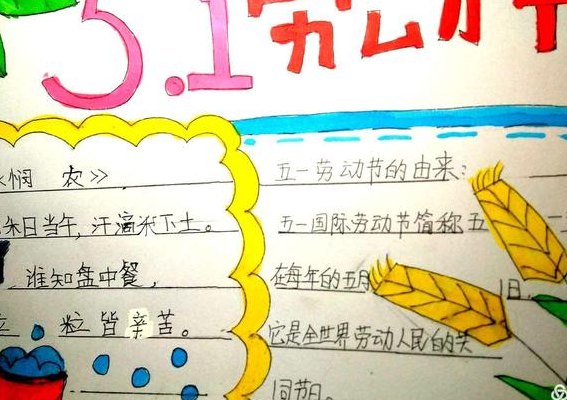 5.1 劳动节
悯 农》
五一劳动节的由来:
禾日当午,汗滴禾下土。
五一国际劳动节简称五一
谁知盘中餐,
在每年的五月1日
粒皆辛苦。
它是全世界劳动人民的共
同节日。